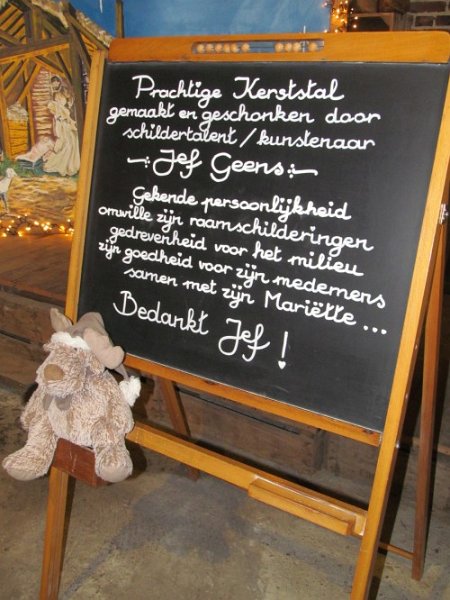 Prachtige Kerststal
gemaakt en geschonken door
schildertalent / kunstenaar
Jef Geens
Gekende persoonlijkheid
omwille zijn raamschilderingen
gedrevenheid voor het milieu
zijn goedheid voor zijn medemens
samen met zijn Mariëtte ...
Bedankt Jef !